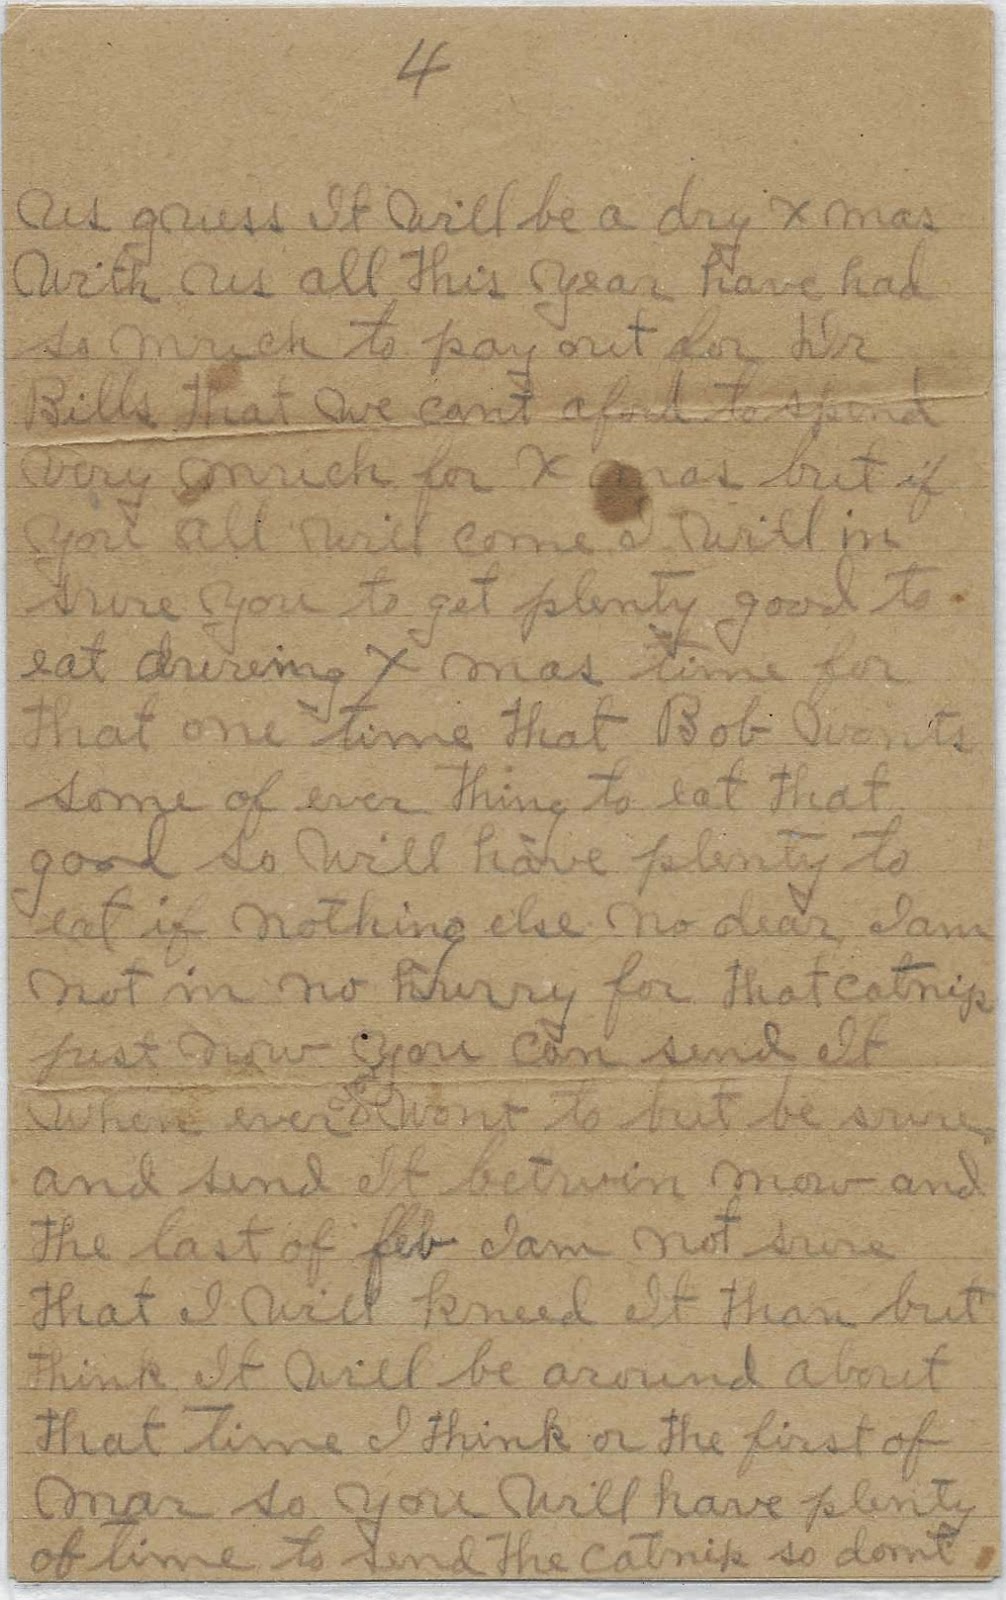 4
us guess It Will be a dry X mas
With us all this year have had
so much to pay out for Dr
Bills that We can't aford to spend
very much for X mas but if
you all will come I Will in
sure you to get plenty good to
eat dureing X mas time for
that one time that Bob Wonts
some of ever thing to eat that
good so Will have plenty to
eat if nothing else no dear I am
not in no hurry for that catnip
just now you can send It
When ever Wont to but be sure
and send It betwin now and
the last of feb I am not sure
that I Will kneed It than but
think It Will be around about
that time I think or the first of
Mar so you Will have plenty
of time to send the catnip so dont